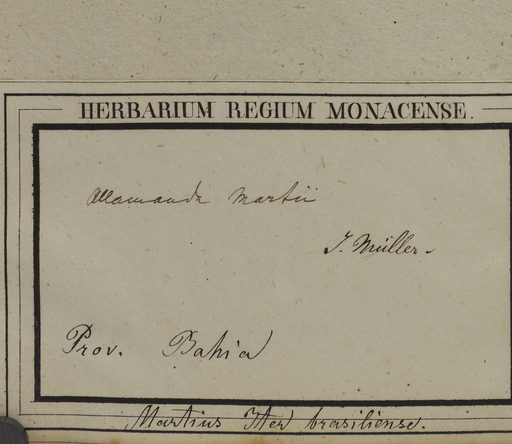 HERBARIUM REGIUM MONACENSE.
Allamanda Martii
J. Müller.
Prov. Bahia
Martius Iter brasiliense.